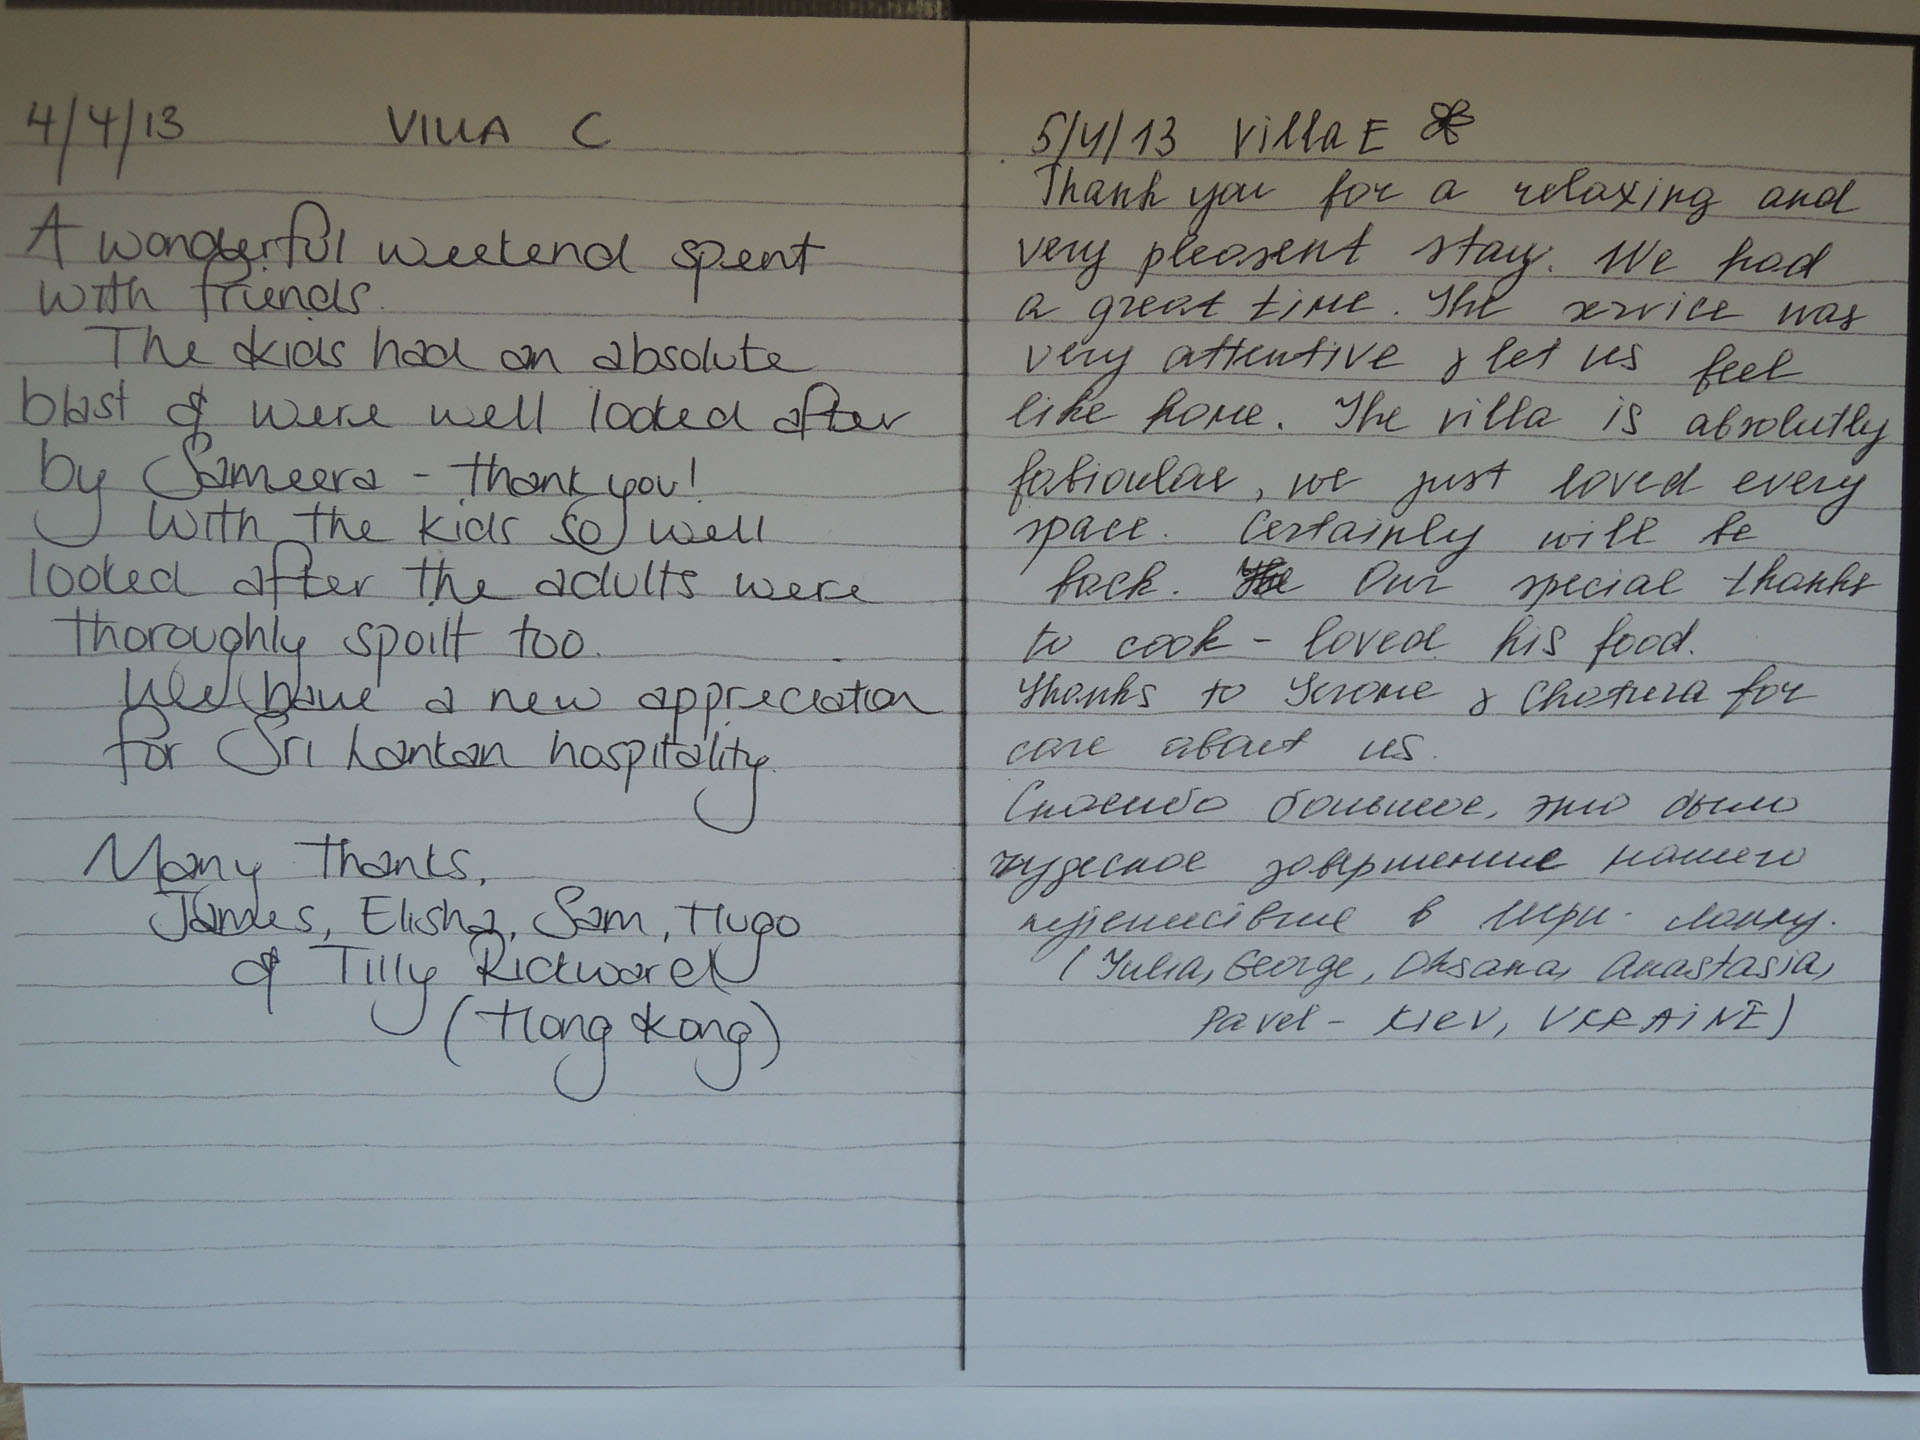 4/4/13 VILLA C
A wonderful weekend spent
with friends.
The kids had an absolute
blast & were well looked after
by Sameera - thank you!
With the kids so well
looked after the adults were
thoroughly spoilt too.
We have a new appreciation
for Sri Lankan hospitality.
Many thanks,
James, Elisha, Sam, Hugo
& Tilly Rickward
(Hong Kong)
5/4/13 Villa E
Thank you for a relaxing and
very pleasent stay. We had
a great time. The service was
very attentive & let us feel
like home. The villa is absolutly
fabioular, we just loved every
space. Certainly will be
back. The Our special thanks
to cook - loved his food.
Thanks to Jerome & Chatura for
care about us.
Спасибо большое, это было
чудесное завершение нашего
путешествие в Шри-Ланку.
(Yulia, George, Oksana, Anastasia,
Pavel - Kiev, UKRAINE)